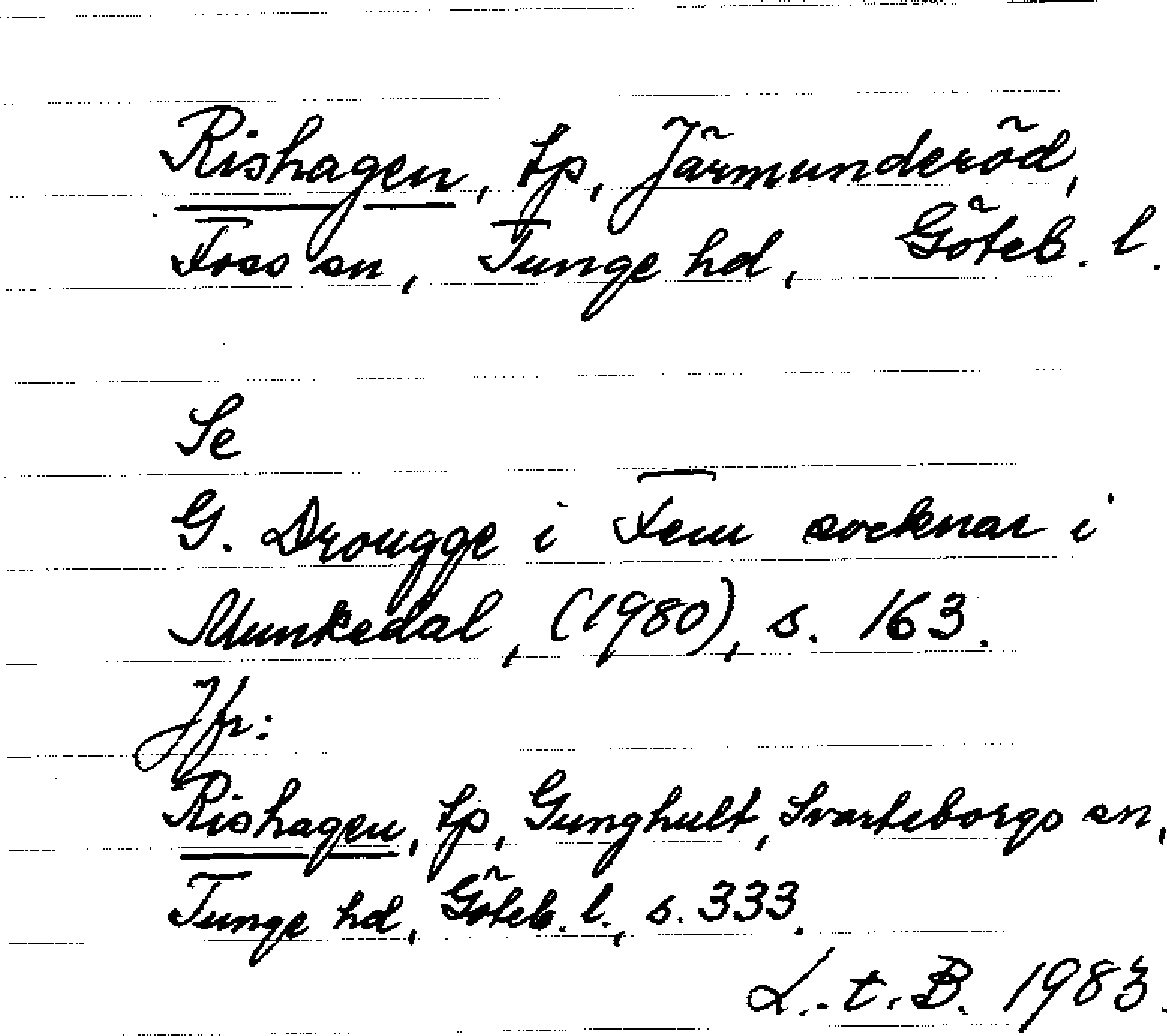 Rishagen, tp, Järmunderöd,
Foss sn, Tunge hd, Göteb. l.
Se
G. Drougge i Fem socknar i
Munkedal, (1980), s. 163.
Jfr:
Rishagen, tp, Gunghult, Svarteborgs sn,
Tunge hd, Göteb. l., s. 333.
L. t. B. 1983.